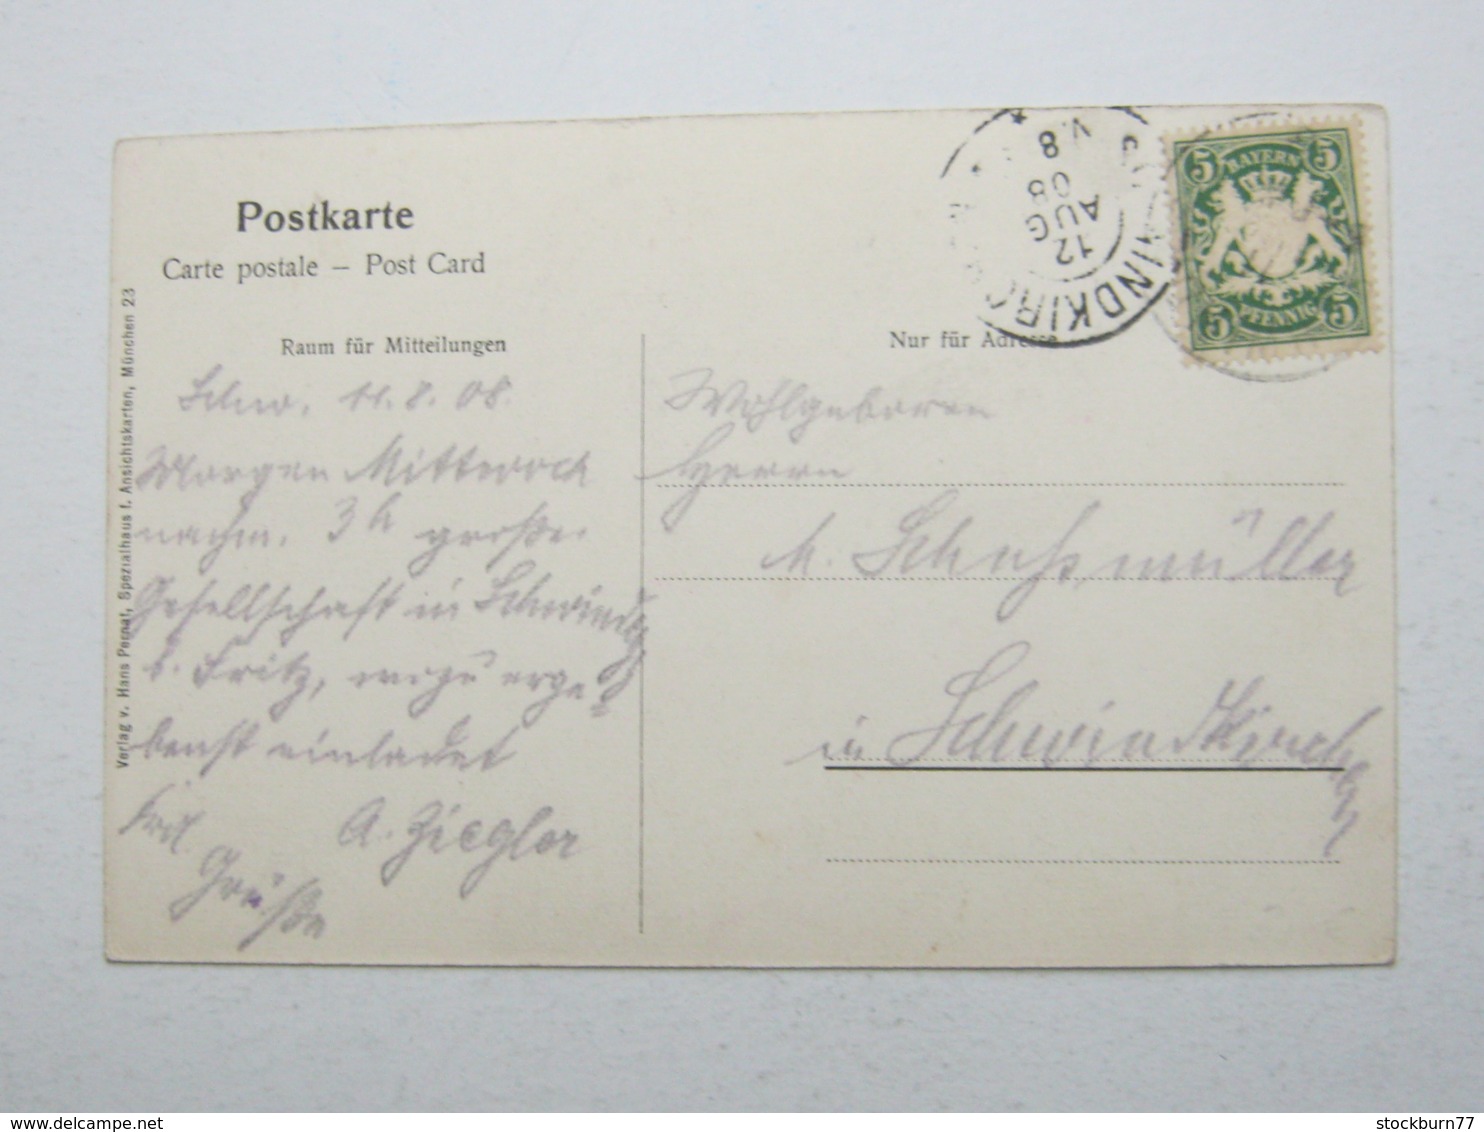 Postkarte
Carte postale – Post Card
Raum für Mitteilungen
Schw. 11.8.08.
Morgen Mittwoch
nachm. 3 h große
Gesellschaft in Schwindg
b. Fritz, wozu erge=
benst einladet
A. Ziegler
Grüße
Verlag v. Hans Pernat, Spezialhaus f. Ansichtskarten, München 23
Nur für Adresse
Wohlgeboren
Herrn
Schußmüller
in Schwindkirchen
INDKIRC
12
AUG
08
V.8
5 BAYERN 5
5 PFENNIG 5
stockburn77